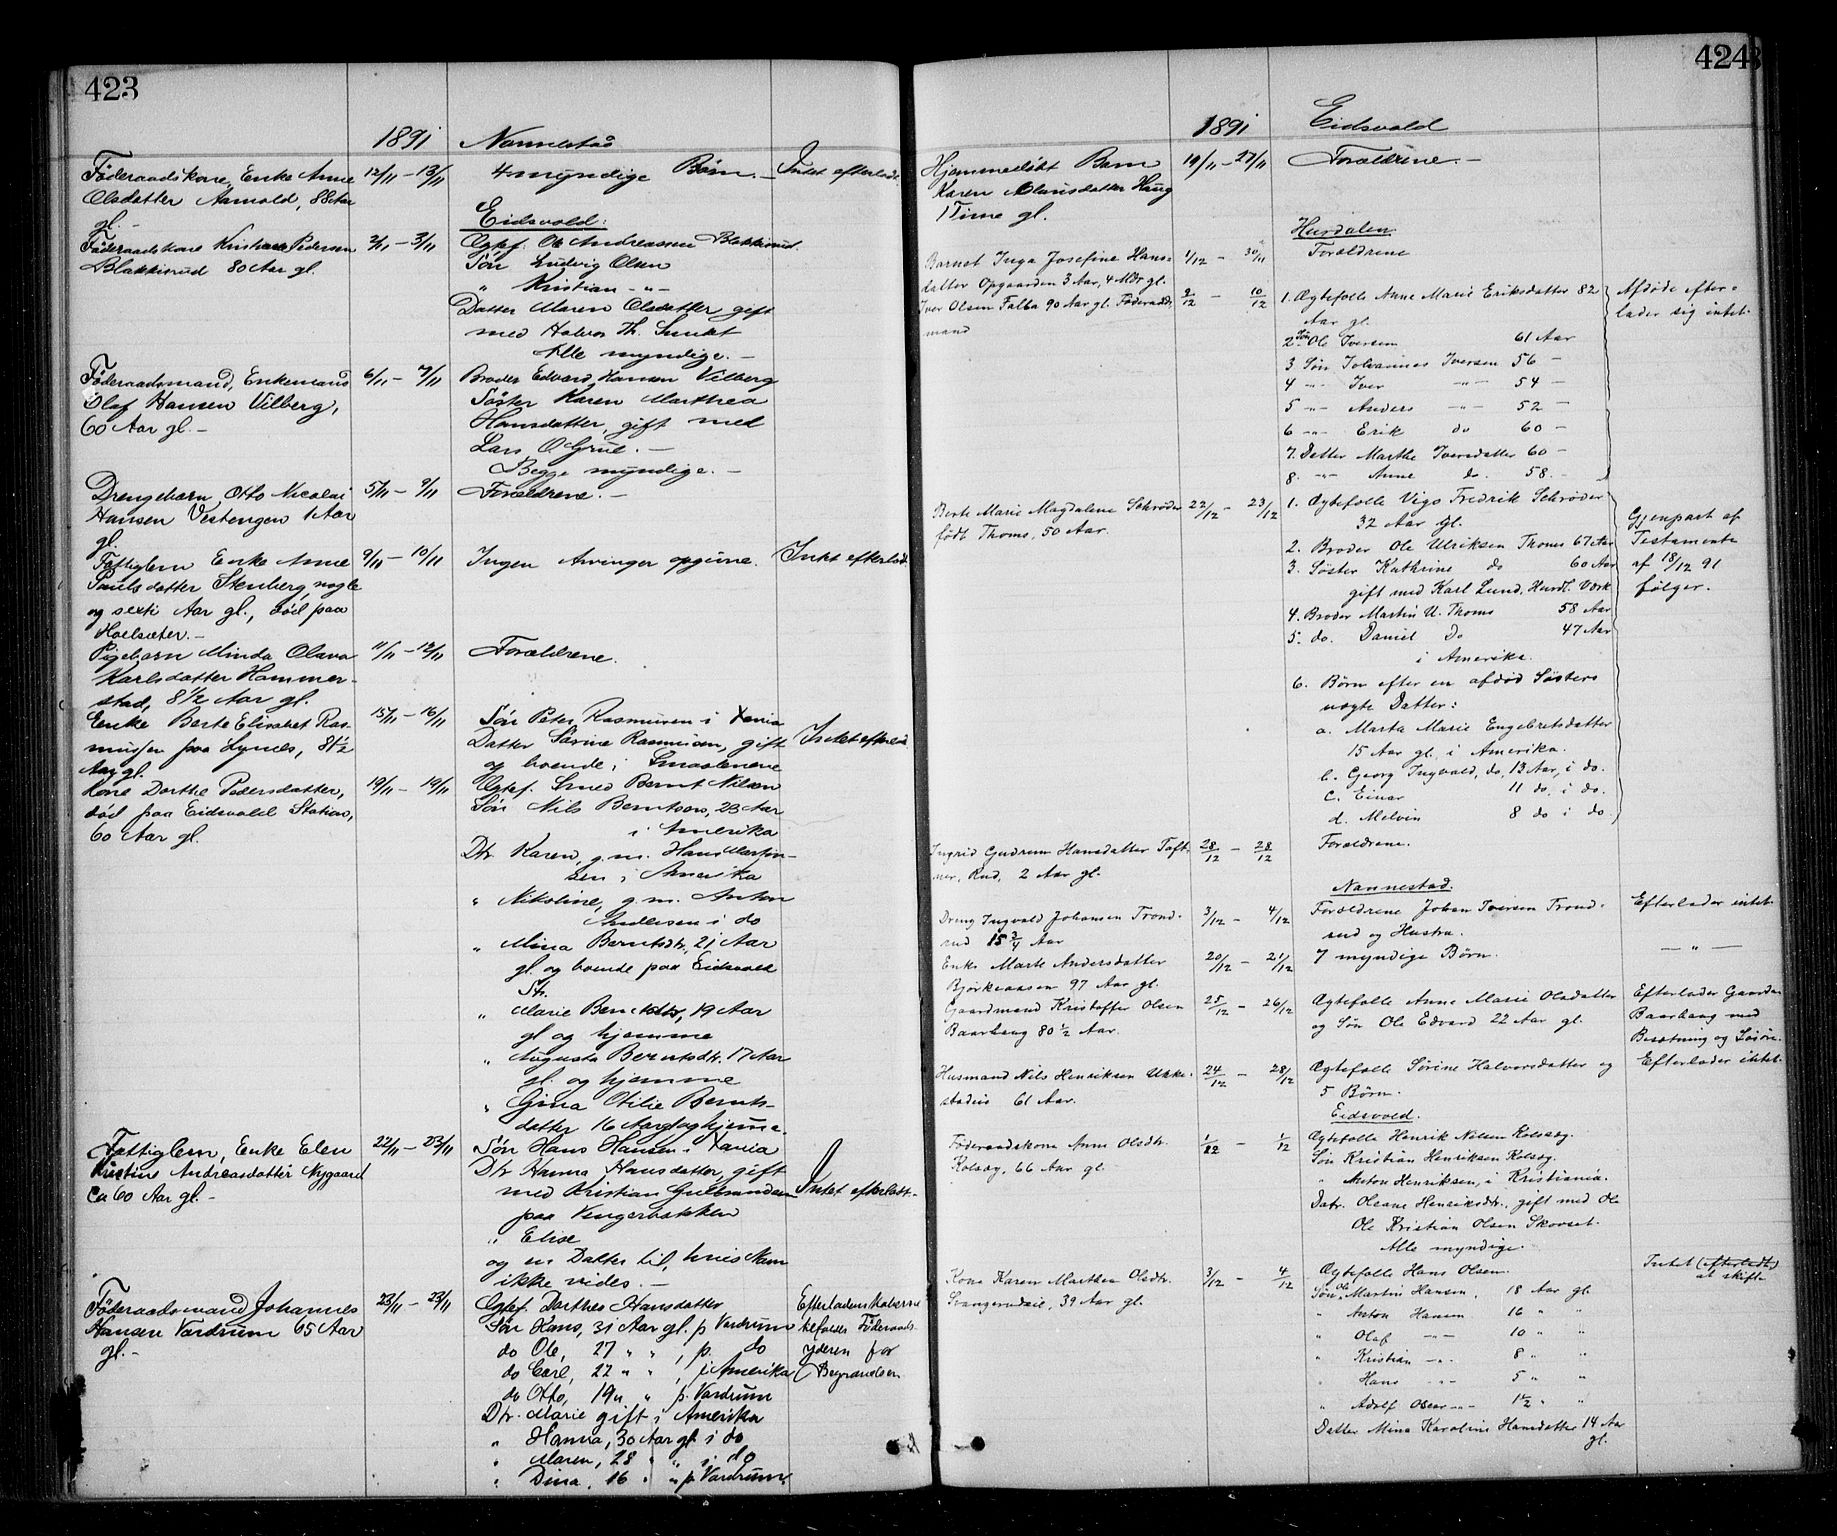 423
1891 Nannestad
Föderaadskone, Enke Anne 12/11 – 13/11 4 myndige Börn. – Intet efterladt.
Olsdatter Aamold, 88 Aar
gl. –
Eidsvold:
Föderaadskone Kristiane Pedersen 2/11 – 3/11 Ægtef. Ole Andreassen Blakkisrud
Blakkisrud 80 Aar gl. Sön Ludvig Olsen
" Kristian –"–
Datter Maren Olsdatter gift
med Halvor Th.
Alle myndige. –
Föderaadsmand, Enkemand 6/11 – 7/11 Broder Edvard Hansen Vilberg
Olaf Hansen Vilberg, Söster Karen Marthea
60 Aar gl. – Hansdatter, gift med
Lars O Grue. –
Begge myndige. –
Drengebarn Otto Nicolai 5/11 – 9/11 Forældrene. –
Hansen Vestengen 1 Aar
gl.
Fattiglem Enke Anne 9/11 – 10/11 Ingen Arvinger opgivne. Intet efterladt
Paulsdatter Stenberg, nogle
og sexti Aar gl., död paa
Hoelsæter. –
Pigebarn Minda Olava 11/11 – 12/11 Forældrene.
Karlsdatter Hammer-
stad, 8 1/2 Aar gl.
Enke Berte Elisabet Ras- 15/11 – 16/11 Sön Peter Rasmussen i Xania
mussen paa Lynes, 81 1/2 Datter Sörine Rasmussen, gift Intet efterladt
Aar gl. og boende i Smaalenene
Kone Dorthe Pedersdatter, 19/11 – 19/11 Ægtef. Smed Bernt Nilsen
död paa Eidsvold Station, Sön Nils Berntsen, 23 Aar
60 Aar gl. i Amerika
Dtr. Karen, g. m. Hans Martin-
sen i Amerika
" Nikoline, g. m. Anton
Andersen i do
" Mina Berntsdtr, 21 Aar
gl. og boende paa Eidsvold
St.
" Marie Berntsdtr, 19 Aar
gl og hjemme
" Augusta Berntsdtr. 17 Aar
gl. og hjemme
" Gina Otilie Bernts-
datter 16 Aar og hjemme.
Fattiglem, Enke Elen 22/11 – 23/11 Sön Hans Hansen i Xania
Kristine Andreasdatter Nygaard Dtr Hanna Hansdatter, gift
ca 60 Aar gl. – med Kristian Gulbrandsen Intet efterladt. –
paa Vingerbakken
" Elise
og en Datter til, hvis Navn
ikke vides. –
Föderaadsmand Johannes 23/11 – 23/11 Ægtef. Dorthea Hansdatter Efterladenskaberne
Hansen Vardrum 65 Aar Sön Hans, 31 Aar gl. p. Vardrum tilfalder Föderaads-
gl. – do Ole, 27 " " , p. do yderen for
do Carl, 22 " " , i Amerika Begravelsen
do Otto, 19 " " p. Vardrum
Dtr. Marie gift i Amerika
" Hanna, 30 Aar gl. i do
" Maren, 28 " " i do
" Dina, 16 " " p Vardrum
424
1891 Eidsvold
Hjemmedöbt Barn 19/11 – 27/11 Forældrene. –
Karen Haug
1 Time gl.
Hurdalen
Barnet Inga Josefine Hans- 1/12 – 30/11 Forældrene
datter Opgaarden 3 Aar, 4 Mdr gl.
Iver Olsen Falba 90 Aar gl. Föderaads- 9/12 – 10/12 1. Ægtefolle Anne Marie Eriksdatter 82 Afdöde efter-
mand Aar gl. lader sig intet.
2 Sön Ole Iversen 61 Aar
3 Sön Johannes Iversen 56 –
4 –"– Iver –"– 54 –
5 –"– Anders –"– 52 –
6 –"– Erik do 60 –
7. Datter Marthe Iversdatter 60 –
8. –"– Anne do. 58. –
Berte Marie Magdalene Schrøder 22/12 – 23/12 1. Ægtefolle Vigo Fredrik Schrøder
født Thoms, 50 Aar. 32 Aar gl. Gjenpart af
2. Broder Ole Ulriksen Thoms 67 Aar Testamente
3. Søster Kathrine do 60 Aar af 18/12 91
gift med Karl Lund, Hurd. Værk følger.
4. Broder Martin U. Thoms 58 Aar
5. do. Daniel Do 47 Aar
i Amerika.
6. Börn efter en afdöd Søsters
uægte Datter:
a. Marta Marie Engebretsdatter
15 Aar gl. i Amerika.
b. Georg Ingvald, do, 13 Aar, i do.
c. Einar 11 do, i do.
d. Melvin 8 do i do.
Ingrid Gudrun Hansdatter Toft- 28/12 – 28/12 Forældrene.
ner, Rud, 2 Aar gl.
Nannestad.
Dreng Ingvald Johansen Trond- 3/12 – 4/12 Forældrene Johan Iversen Trond- Efterlader intet.
rud 15 3/4 Aar rud og Hustru.
Enke Marte Andersdatter 20/12 – 21/12 7 myndige Börn. – " –
Bjørkeaasen 97 Aar gl.
Gaardmand Kristoffer Olsen 25/12 – 26/12 Ægtefolle Anne Marie Olsdatter Efterlader Gaarden
Baarhaug 80 1/2 Aar. og Søn Ole Edvard 22 Aar gl. Baarhaug med
Besætning og Løsøre.
Husmand Nils Henriksen Ukke- 24/12 – 28/12 Ægtefolle Sørine Halvorsdatter og Efterlader intet.
stadeie 61 Aar. 5 Börn.
Eidsvold.
Föderaadskone Anne Olsdtr. 1/12 – 1/12 Ægtefolle Henrik Nilsen Kolsæg.
Kolsæg, 66 Aar gl. Søn Kristian Henriksen Kolsæg.
" Anton Henriksen, i Kristiania.
Datr. Oleane Henriksdtr., gift med Ole
Ole Kristian Olsen Skovset.
Alle myndige.
Kone Karen Marthea Olsdtr. 3/12 – 4/12 Ægtefolle Hans Olsen. Intet (efterladt)
39 Aar gl. Søn Ole Martin Hansen, 18 Aar gl. at skifte
" Anton Hansen 16 " "
" Olaf –"– 10 " "
" Kristian –"– 8 " "
" Hans –"– 5 " "
" Adolf Oscar –"– 1 1/2 " "
Datter Mina Karoline Hansdatter 14 Aar
gl.